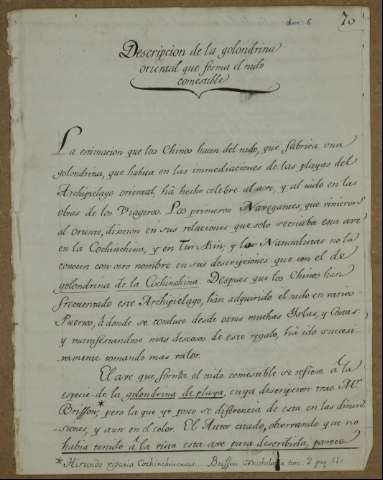 70
Descripcion de la golondrina
oriental que forma el nido
comestible
La estimacion que los Chinos hacen del nido, que fabrica una
golondrina, que habita en las immediaciones de las playas del
Archipielago oriental, há hecho célebre al ave, y al nido en las
obras de los Viageros. Los primeros Navegantes, que vinieron
al Oriente, dixeron en sus relaciones que solo se criaba esta ave
en la Cochinchina, y en Tunkin, y los Naturalistas no la
conocen con otro nombre en sus descripciones que con el de
golondrina de la Cochinchina. Despues que los Chinos han
frecuentado este Archipielago, han adquirido el nido en varios
Puertos, á donde se conduce desde otras muchas Yslas, y Costas
y manifestandose mas deseosos de este regalo, há ido sucesi-
vamente tomando mas valor.
El ave que forma el nido comestible se refiere á la
especie de la golondrina de playa, cuya descripcion trae Mr.
Brisson*, pero la que yo poseo se diferencia de esta en las dimen-
siones, y aun en el color. El Autor citado, observando que no
habia tenido á la vista esta ave para describirla, parece
* Hirundo riparia Cochinchinensis. Brisson Ornithologia tom. 2 pag.